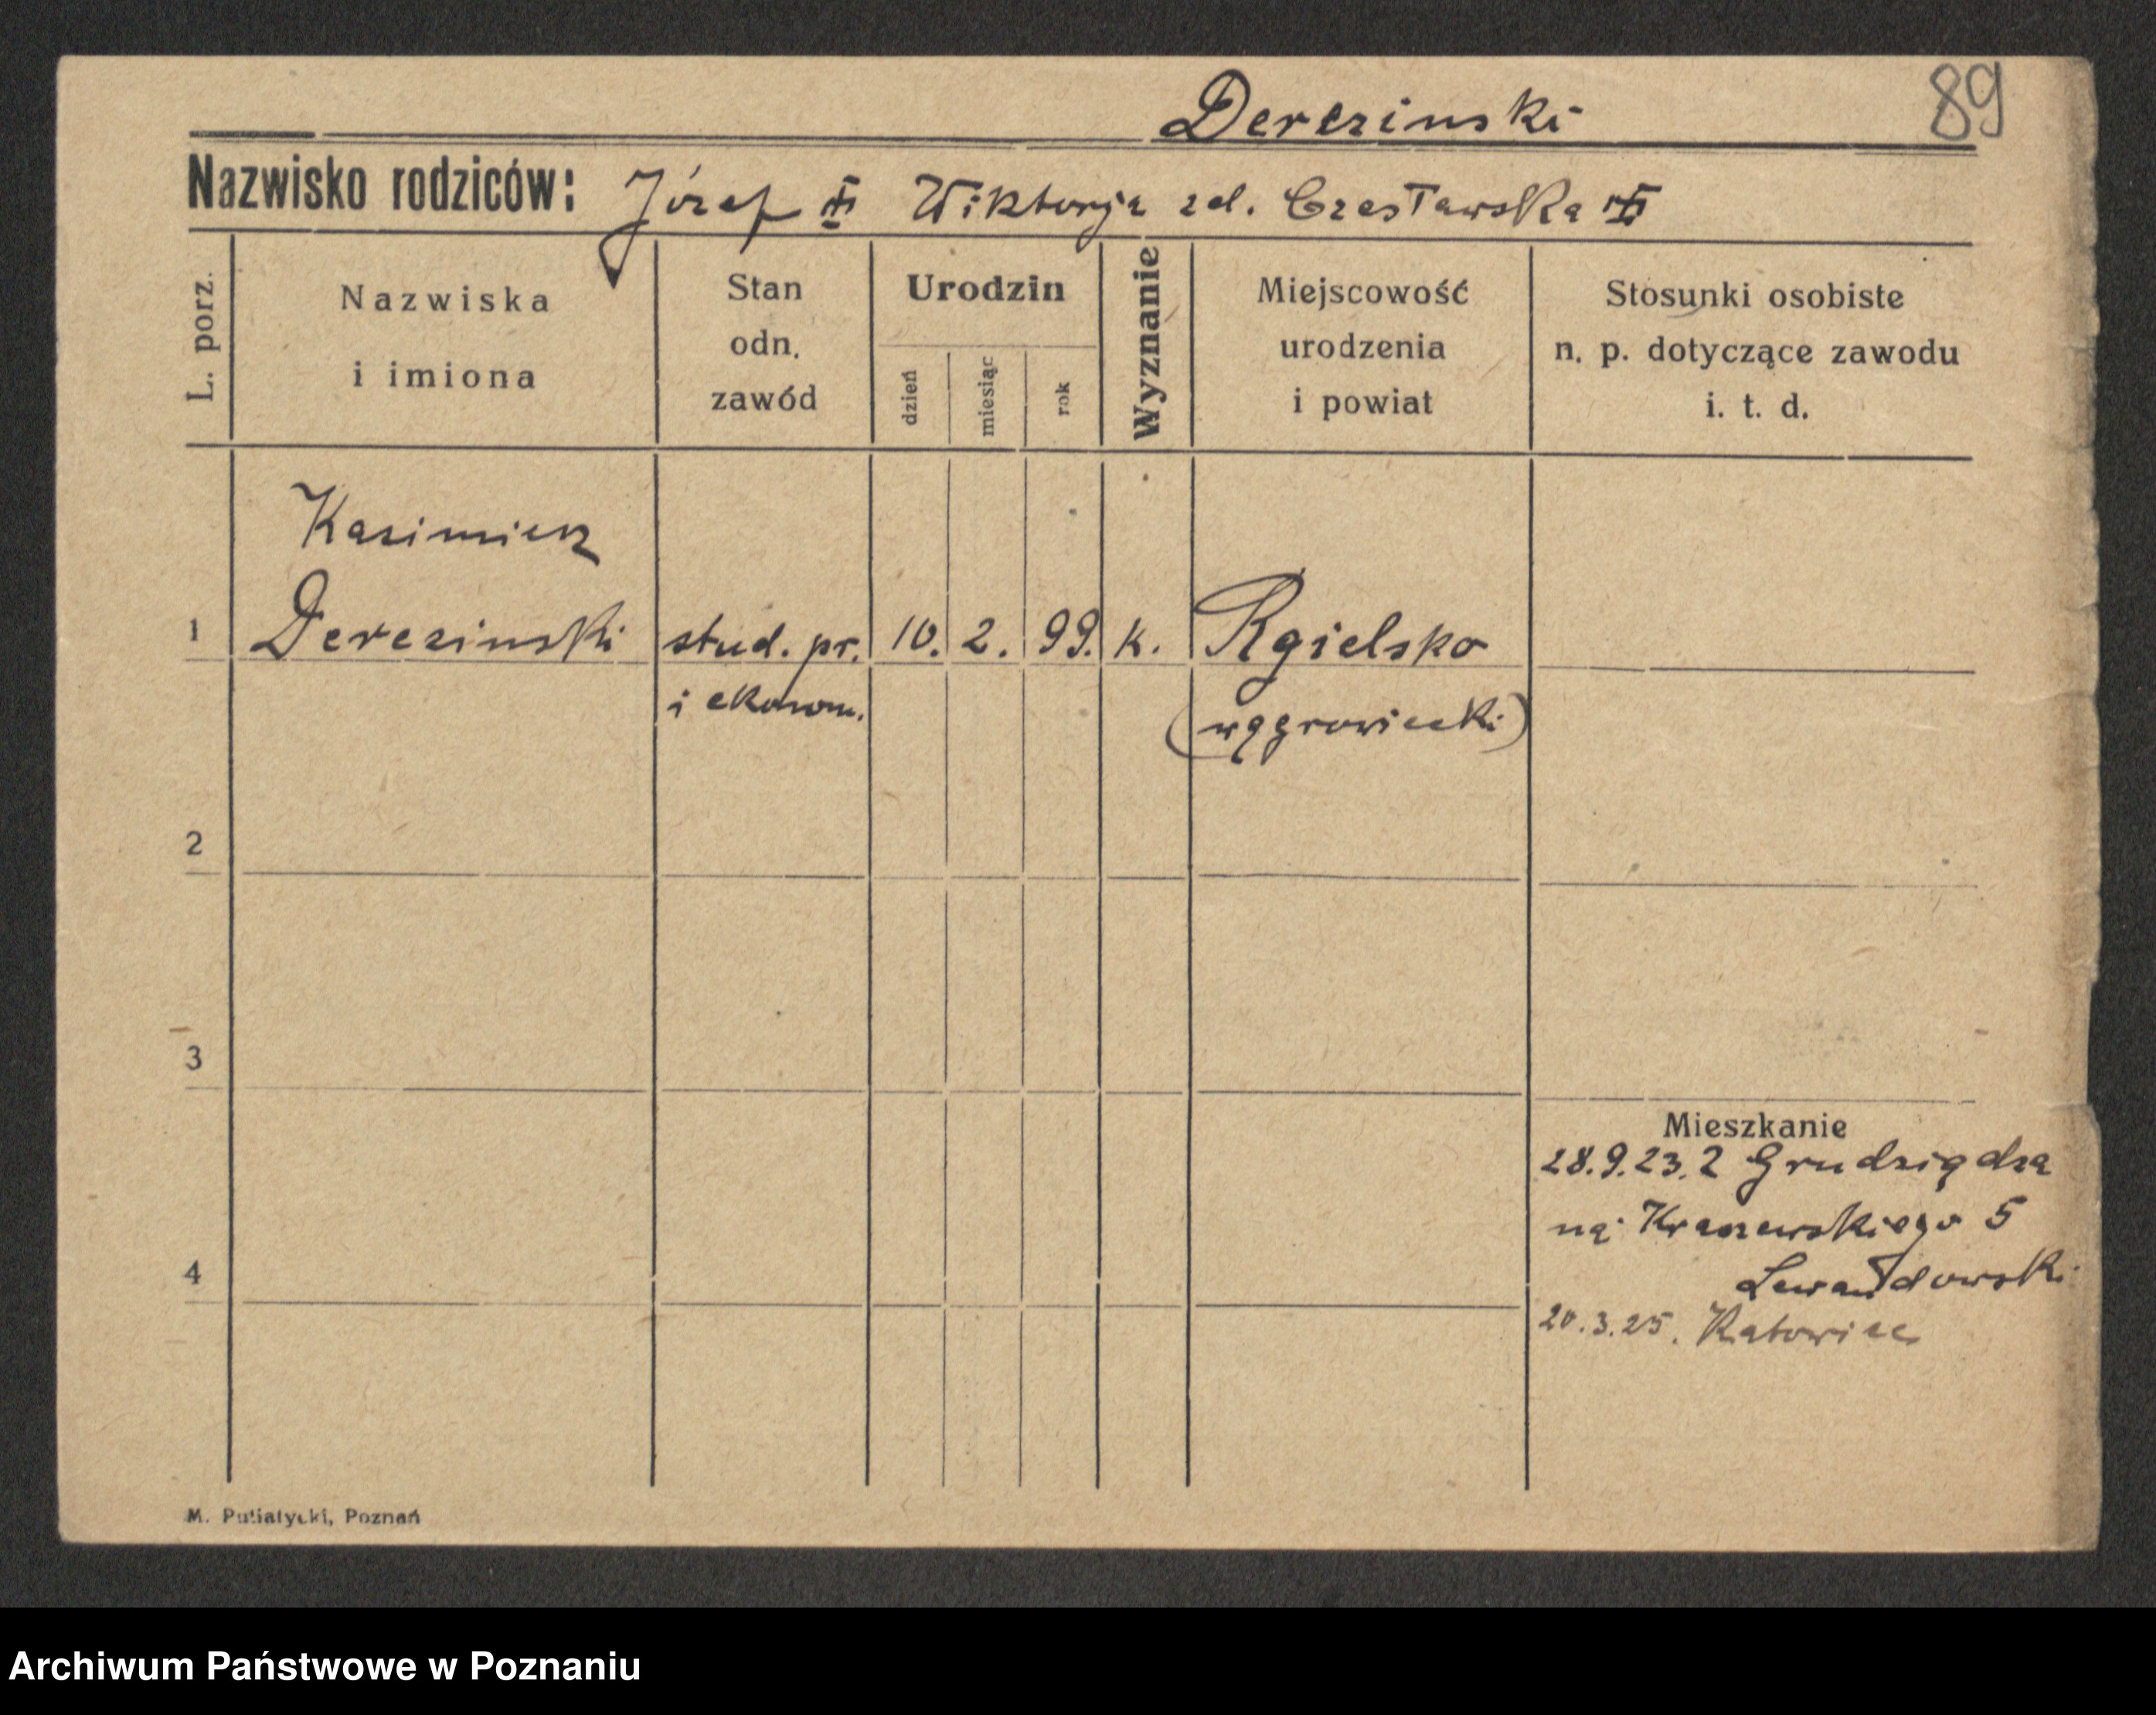 Derezinski 89
Nazwisko rodziców: Józef Wiktorja zd. Czesławska
L. porz.
Nazwiska
i imiona
Stan
odn.
zawód
Urodzin
dzień
miesiąc
rok
Wyznanie
Miejscowość
urodzenia
i powiat
Stosunki osobiste
n. p. dotyczące zawodu
i. t. d.
Kazimierz
1 Derezinski stud. pr. 10. 2. 99. k. Rgielsko
i ekonom. (wągrowiecki)
2
3
Mieszkanie
28.9.23. z Grudziądza
na Kraszewskiego 5
4
Lewandowski
20.3.25. Katowice
M. Putiatycki, Poznań
Archiwum Państwowe w Poznaniu